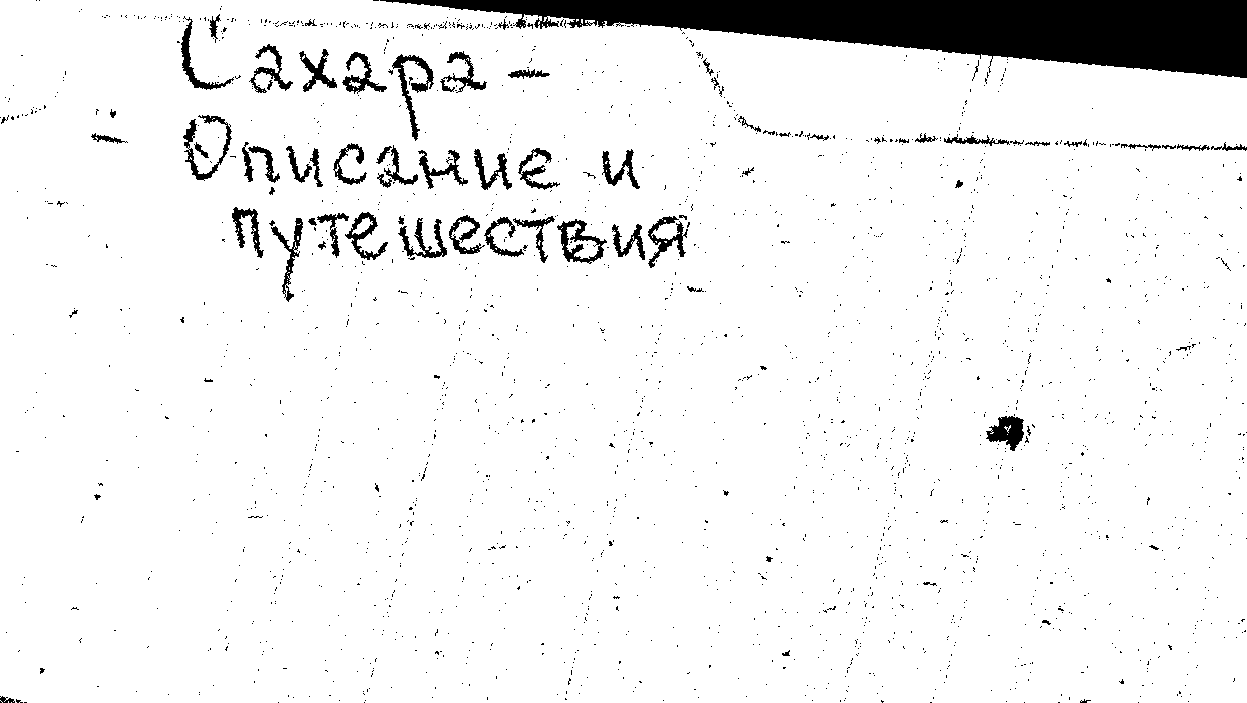 Сахара –
– Описание и
путешествия